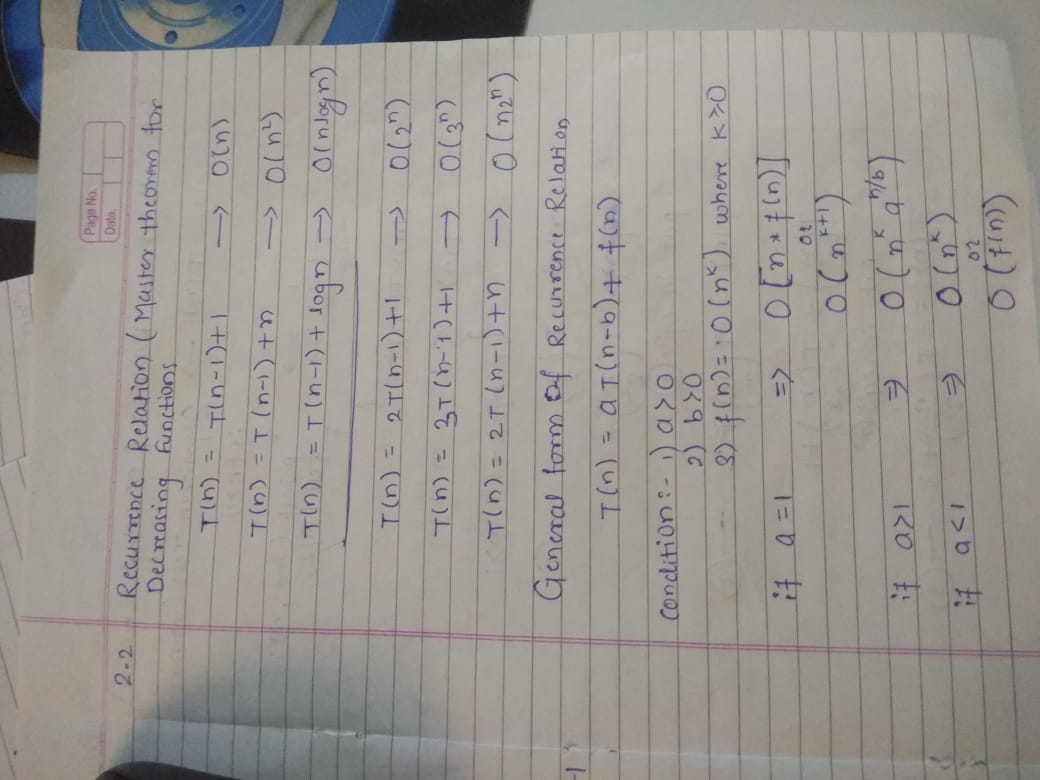 Page No.
Date.
2.2 Recurrence Relation (Master theorem for
Decreasing Functions
T(n) = T(n-1)+1 → O(n)
T(n) = T(n-1)+n → O(n²)
T(n) = T(n-1)+logn → O(nlogn)
T(n) = 2T(n-1)+1 → O(2ⁿ)
T(n) = 3T(n-1)+1 → O(3ⁿ)
T(n) = 2T(n-1)+n → O(n2ⁿ)
General form of Recurrence Relation
T(n) = aT(n-b)+f(n)
condition:- 1) a>0
2) b>0
3) f(n)=O(n^k) where K≥0
if a=1 ⇒ O[n*f(n)]
or
O(n^k+1)
if a>1 ⇒ O(n^k a^n/b)
if a<1 ⇒ O(n^k)
or
O(f(n))